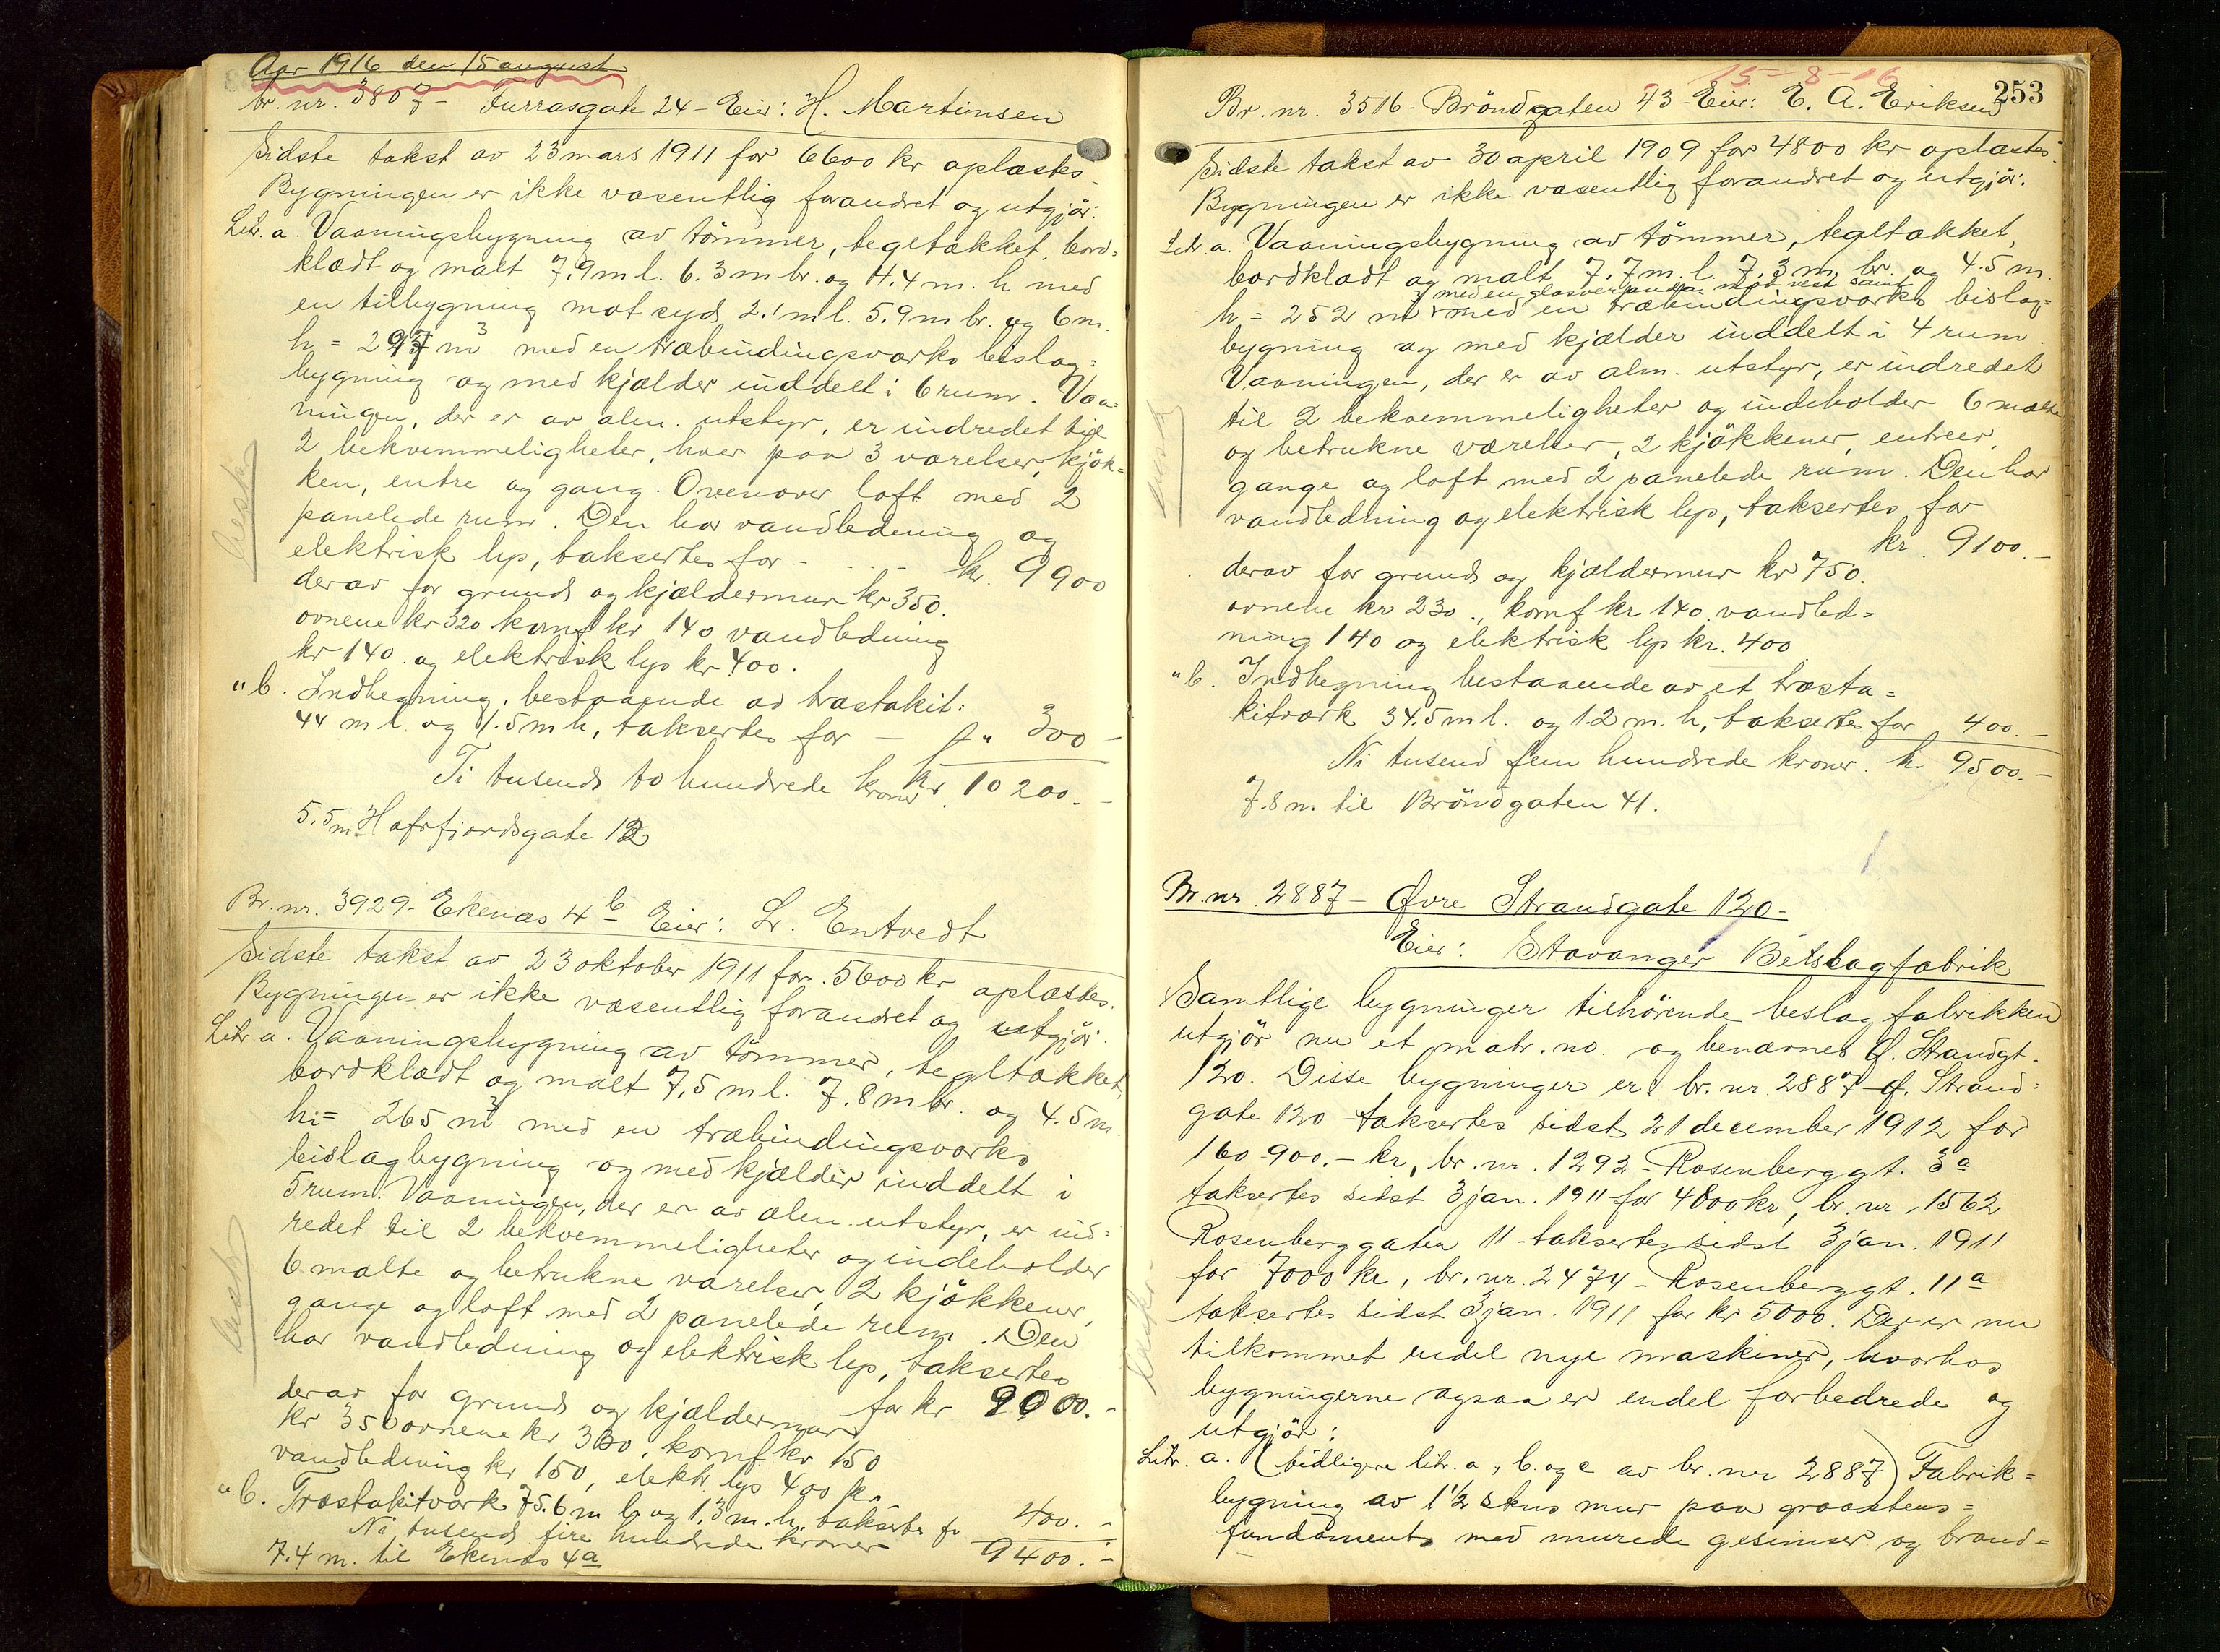 Aar 1916 den 15 august
br. nr. 3807 - Furrasgate 24 - Eier: H. Martinsen
Sidste takst av 23 mars 1911 for 6600 kr oplæstes.
Bygningen er ikke væsentlig forandret og utgjör:
Litr. a. Vaaningsbygning av tömmer, tegltækket, bord=
klædt og malt 7.9 m l. 6.3 m br. og 4.4 m. h med
en tilbygning mot syd 2.1 m l. 5.9 m br. og 6 m.
h = 297 m³ med en træbindingsværks bislag=
bygning og med kjælder inddelt i 6 rum. Vaa=
ningen, der er av alm. utstyr, er indredet til
2 bekvemmeligheter, hver paa 3 værelser, kjök=
ken, entre og gang. Ovenover loft med 2
panelede rum. Den har vandledning og
elektrisk lys, taksertes for - . . . - kr. 9900
derav for grund og kjældermur kr 350.
ovnene kr 320 komf kr 140 vandledning
kr 140. og elektrisk lys kr 400.
" b. Indhegning, bestaaende av træstakit:
44 m l. og 1.5 m h, taksertes for - " 300 -
Ti tusend to hundrede kroner kr. 10 200. -
5.5 m Hafrsfjordsgate 12
besk
Br. nr. 3929 - Ekenæs 4 b - Eier: L. Entvedt
Sidste takst av 23 oktober 1911 for 5600 kr oplæstes.
Bygningen er ikke væsentlig forandret og utgjör:
Litr a. Vaaningsbygning av tömmer, tegltækket,
bordklædt og malt 7,5 m l. 7.8 m br. og 4.5 m
h = 265 m³ med en træbindingsværks
bislagbygning og med kjælder inddelt i
5 rum. Vaaningen, der er av alm. utstyr, er ind=
redet til 2 bekvemmeligheter og indeholder
6 malte og betrukne værelser, 2 kjökkener,
gange og loft med 2 panelede rum. Den
har vandledning og elektrisk lys, taksertes
for kr 9000. -
derav for grund og kjældermur
kr 350 ovnene kr 330, komf kr 150
vandledning kr 150, elektr. lys 400 kr.
" b. Træstakitværk 75.6 m l. og 1.3 m. h. taksertes fr 400. -
Ni tusend fire hundrede kroner 9400. -
7.4 m. til Ekenæs 4a
besk
15-8-16
253
Br. nr. 3516 - Bröndgaten 43 - Eier: E. A. Eriksen
Sidste takst av 30 april 1909 for 4800 kr oplæstes.
Bygningen er ikke væsentlig forandret og utgjör:
Litr. a. Vaaningsbygning av tömmer, tegltækket,
bordklædt og malt 7.7 m. l. 7.3 m. br. og 4.5 m.
med en glasveranda mod vest samt
h = 252 m³ med en træbindingsværks bislag=
bygning og med kjælder inddelt i 4 rum.
Vaaningen, der er av alm. utstyr, er indredet
til 2 bekvemmeligheter og indeholder 6 malte
og betrukne værelser, 2 kjökkener, entreer,
gange og loft med 2 panelede rum. Den har
vandledning og elektrisk lys, taksertes for
kr. 9100. -
derav for grund og kjældermur kr 750.
ovnene kr 230., komf kr 140. vandled=
ning 140 og elektrisk lys kr. 400
" b. Indhegning bestaaende av et træsta=
kitværk 34.5 m l. og 1.2 m. h, taksertes for 400. -
Ni tusend fem hundrede kroner. kr. 9500. -
7.8 m. til Bröndgaten 41.
besk
Br. nr. 2887 - Øvre Strandgate 120 -
Eier: Stavanger Beslagfabrik
Samtlige bygninger tilhörende beslagfabrikken
utgjör nu et matr. no. og benævnes Ø. Strandgt.
120. Disse bygninger er: br. nr. 2887 - Ø. Strand=
gate 120 - taksertes sidst 21 december 1912 for
160 900. - kr, br. nr. 1292 - Rosenberggt. 3a
taksertes sidst 3 jan. 1911 for 4800 kr, br. nr. 1562
Rosenberggaten 11 - taksertes sidst 3 jan. 1911
for 7000 kr, br. nr. 2474 - Rosenberggt. 11a
taksertes sidst 3 jan. 1911 for kr 5000. Der er nu
tilkommet endel nye maskiner, hvorhos
bygningerne ogsaa er endel forbedrede og
utgjör:
Litr. a. (tidligere litr. a, b. og c av br. nr 2887) Fabrik=
bygning av 1½ stens mur paa graastens=
fundament med murede gesimser og brand=